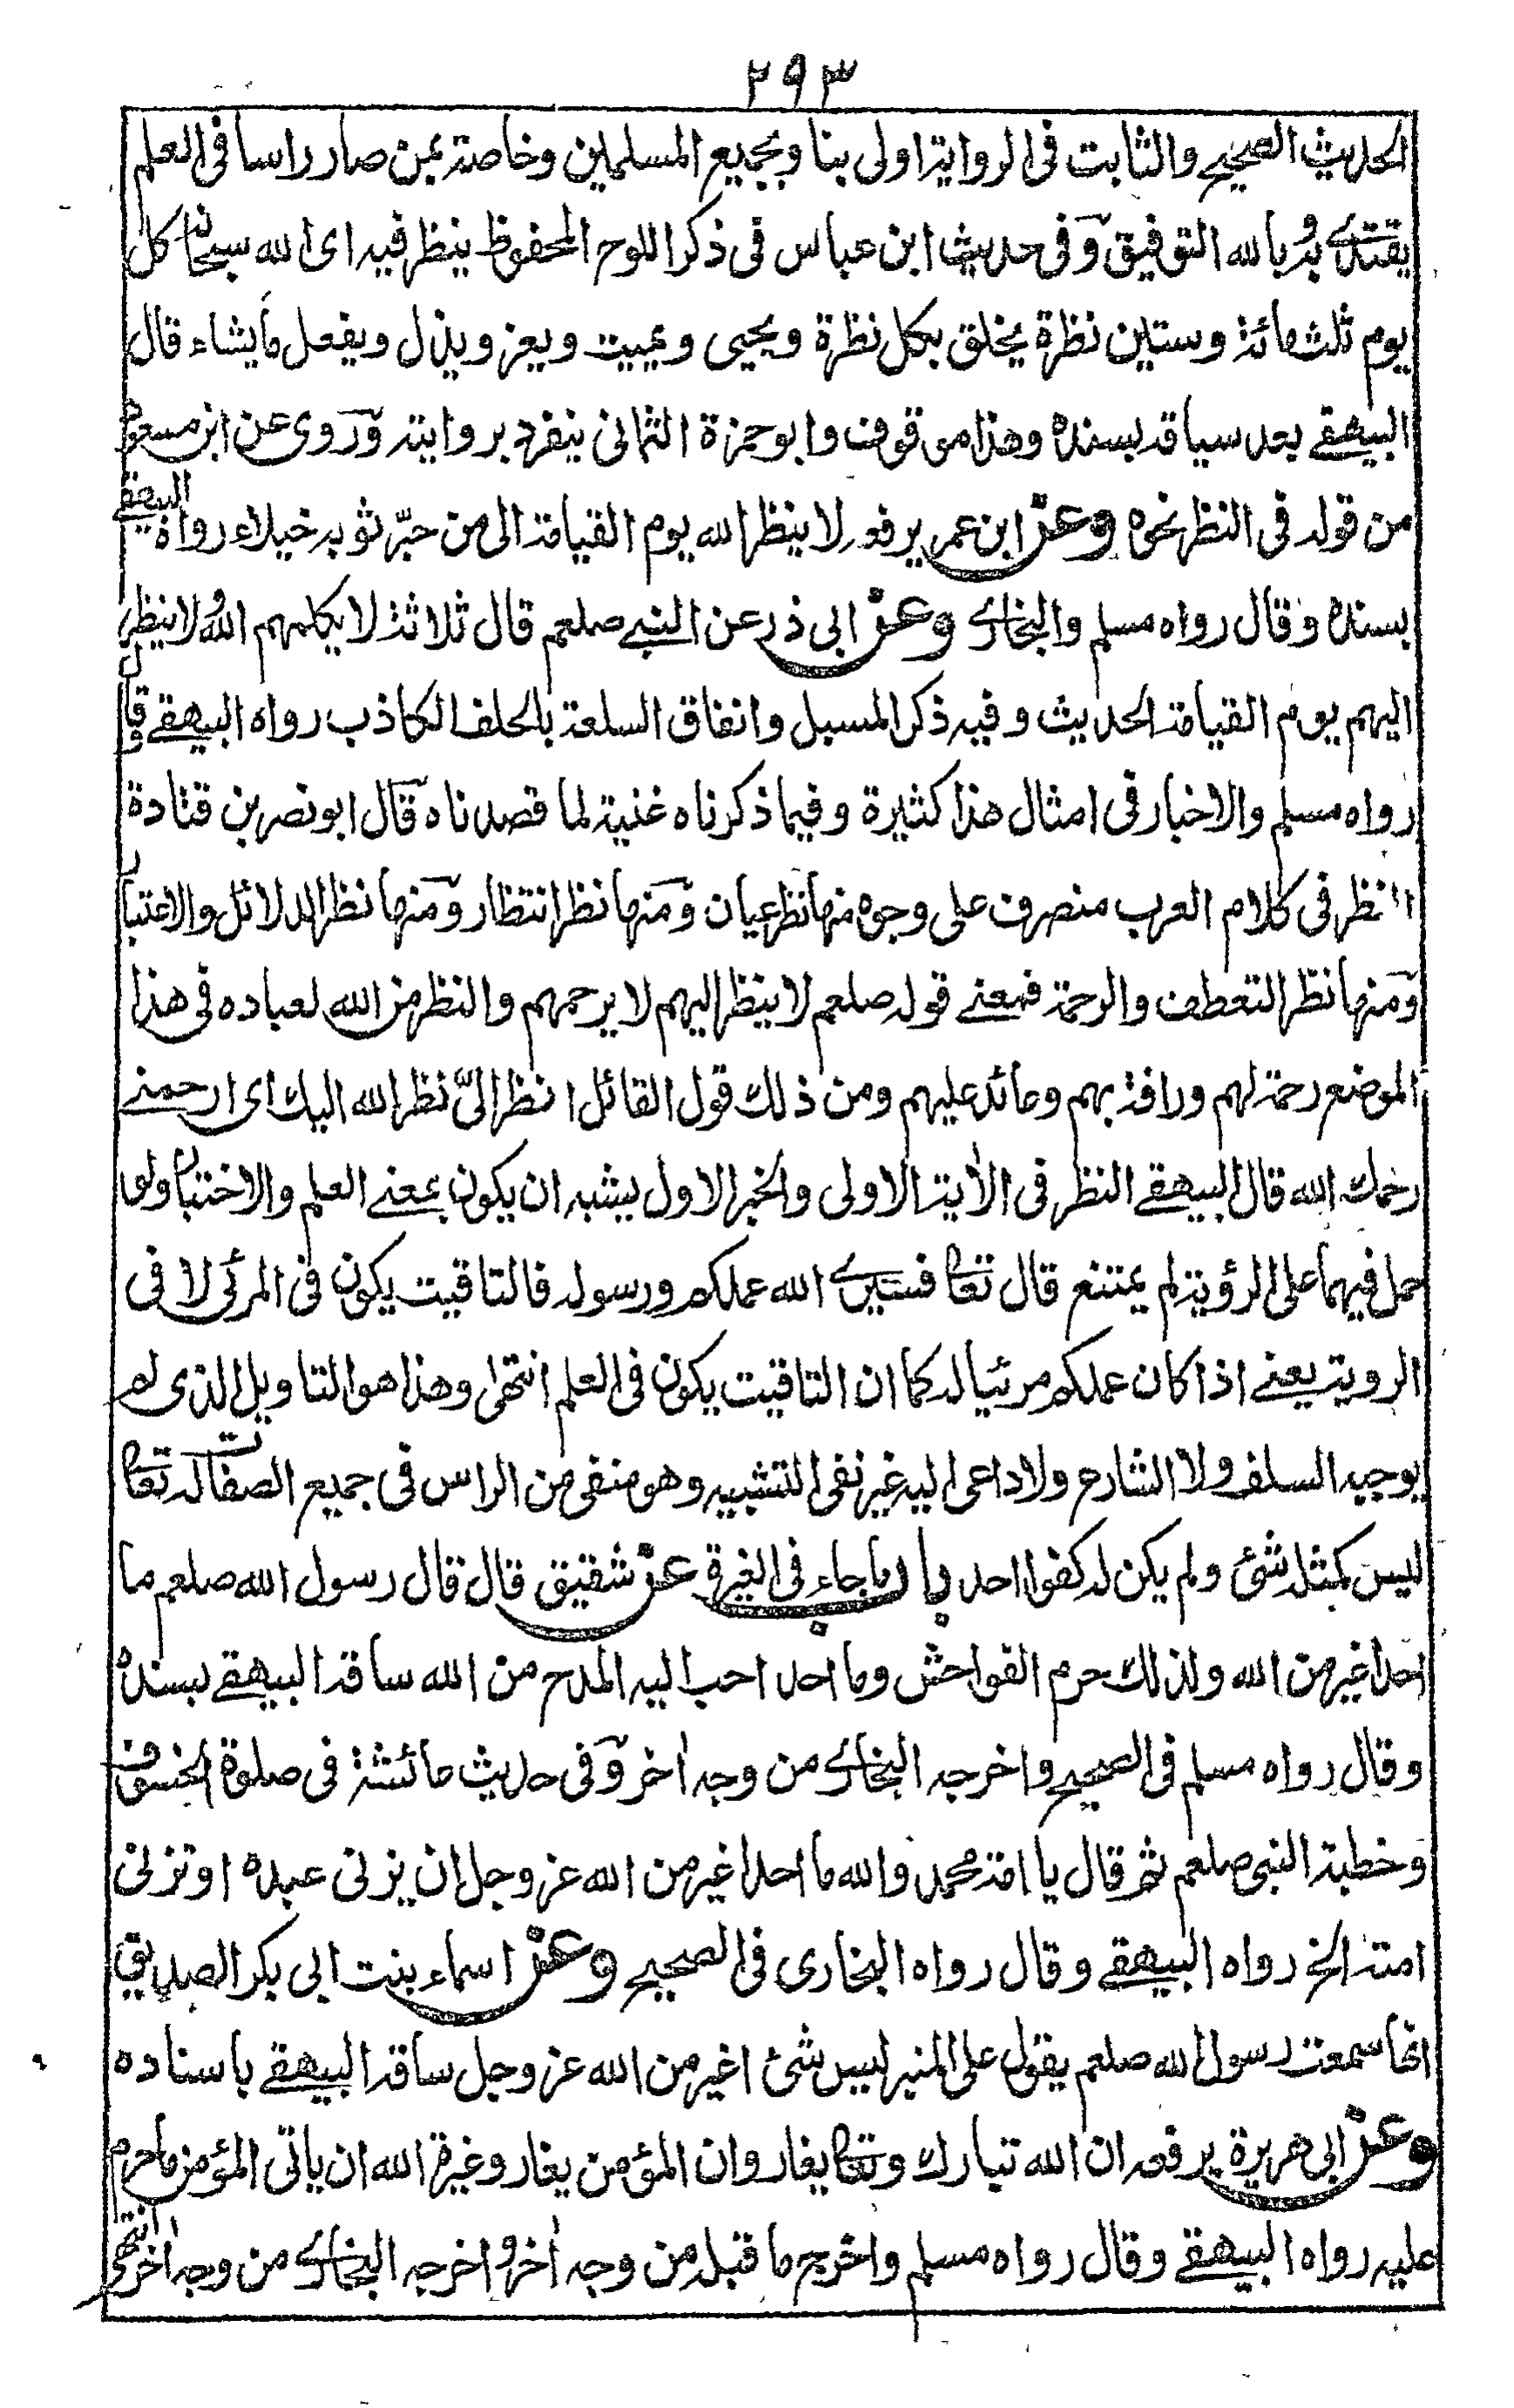 ٢٩٣
الحديث الصحيح والثابت فى الرواية اولى بنا وبجميع المسلمين وخاصة بمن صار راسا فى العلم
يقتدى به وبالله التوفيق وفى حديث ابن عباس فى ذكر اللوح المحفوظ ينظر فيه اى الله سبحانه كل
يوم ثلثمائة وستين نظرة يخلق بكل نظرة ويحيى ويميت ويعز ويذل ويفعل ما يشاء قال
البيهقے بعد سياقه بسنده وهذا موقوف وابو حمزة الثمالى ينفرد بروايته وروى عن ابن مسعود
من قوله فى النظر نحوه وعن ابن عمر يرفعه لا ينظر الله يوم القيامة الى من جرّ ثوبه خيلاء رواه البيهقے
بسنده وقال رواه مسلم والبخارى وعن ابى ذر عن النبے صلعم قال ثلاثة لا يكلمهم الله ولا ينظر
اليهم يوم القيامة الحديث وفيه ذكر المسبل وانفاق السلعة بالحلف الكاذب رواه البيهقے وقال
رواه مسلم والاخبار فى امثال هذا كثيرة وفيما ذكرناه غنية لما قصدناه قال ابو نصر بن قتادة
النظر فى كلام العرب منصرف على وجوه منها نظر عيان ومنها نظر انتظار ومنها نظر الدلائل والاعتبار
ومنها نظر التعطف والرحمة فمعنے قوله صلعم لا ينظر اليهم لا يرحمهم والنظر من الله لعباده فى هذا
الموضع رحمة لهم ورافة بهم وعائدة عليهم ومن ذلك قول القائل انظر الىّ نظر الله اليك اى ارحمنے
رحمك الله قال البيهقے النظر فى الاٰية الاولى والخبر الاول يشبه ان يكون بمعنے العلم والاختبار ولو
حمل فيهما على الرؤية لم يمتنع قال تعا فسيرى الله عملكم ورسوله فالتاقيت يكون فى المرئى لا فى
الروية يعنے اذا كان عملكم مرئيا له كما ان التاقيت يكون فى العلم انتهى وهذا هو التاويل الذى لم
يوجبه السلف ولا الشارع ولا داعى اليه غير نفى التشبيه وهو منفى من الراس فى جميع الصفات له تعا
ليس كمثله شئ ولم يكن له كفوا احد باب ما جاء فى الغيرة عن شقيق قال قال رسول الله صلعم ما
احد اغير من الله ولذلك حرم الفواحش وما احد احب اليه المدح من الله ساقه البيهقے بسنده
وقال رواه مسلم فى الصحيح واخرجه البخارى من وجه اٰخر وفى حديث عائشة فى صلوة الخسوف
وخطبة النبى صلعم ثم قال يا امة محمد والله ما احد اغير من الله عز وجل ان يزنى عبده او تزنى
امته الخ رواه البيهقے وقال رواه البخارى فى الصحيح وعن اسماء بنت ابى بكر الصديق
انها سمعت رسول الله صلعم يقول على المنبر ليس شئ اغير من الله عز وجل ساقه البيهقے باسناده
وعن ابى هريرة يرفعه ان الله تبارك وتعا يغار وان المؤمن يغار وغيرة الله ان ياتى المؤمن ما حرم
عليه رواه البيهقے وقال رواه مسلم واخرج ما قبله من وجه اٰخر واخرجه البخارى من وجه اٰخر انتهى